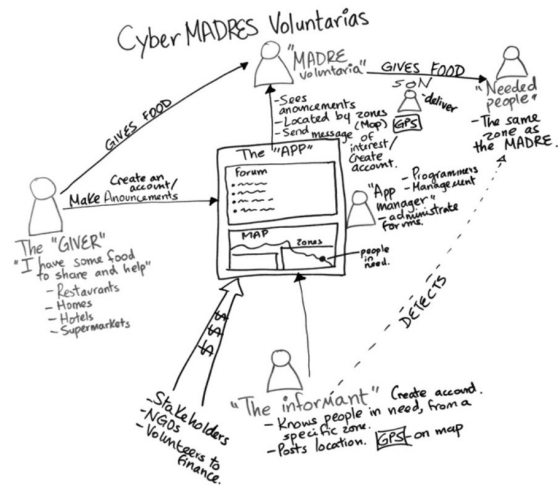 CyberMADRES Voluntarias
"MADRE
Voluntaria"
GIVES FOOD
SON
"deliver
GPS
"Needed
people"
- The same
zone as
the MADRE.
GIVES FOOD
- Sees
anouncements
- Located by zones
(Map)
- Send message of
interest/
Create
account.
The "APP"
Forum
MAP
zones
people
in
need.
"App
manager"
- Programmers
- Management
- administrate
forums.
Create an
account/
Make Anouncements
The "GIVER"
"I have some food
to share and help"
- Restaurants
- Homes
- Hotels
- Supermarkets
DETECTS
$ $ $
- Stakeholders
- NGOs
- Volunteers to
finance.
"The informant"
Create account.
- Knows people in need, from a
specific zone.
- Posts location. GPS - on map